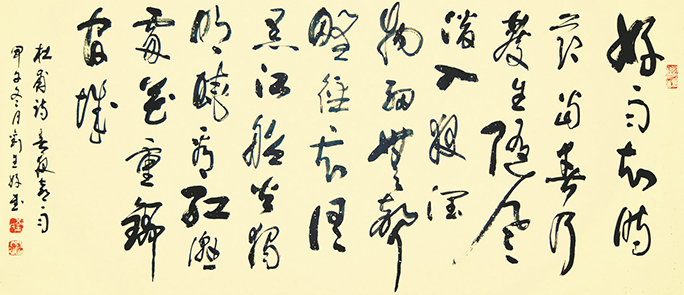 好雨知時
節當春乃
發生隨風
潛入夜潤
物細無聲
野徑雲俱
黑江船火獨
明曉看紅濕
處花重錦
官城
杜甫詩春夜喜雨
甲子冬月劉